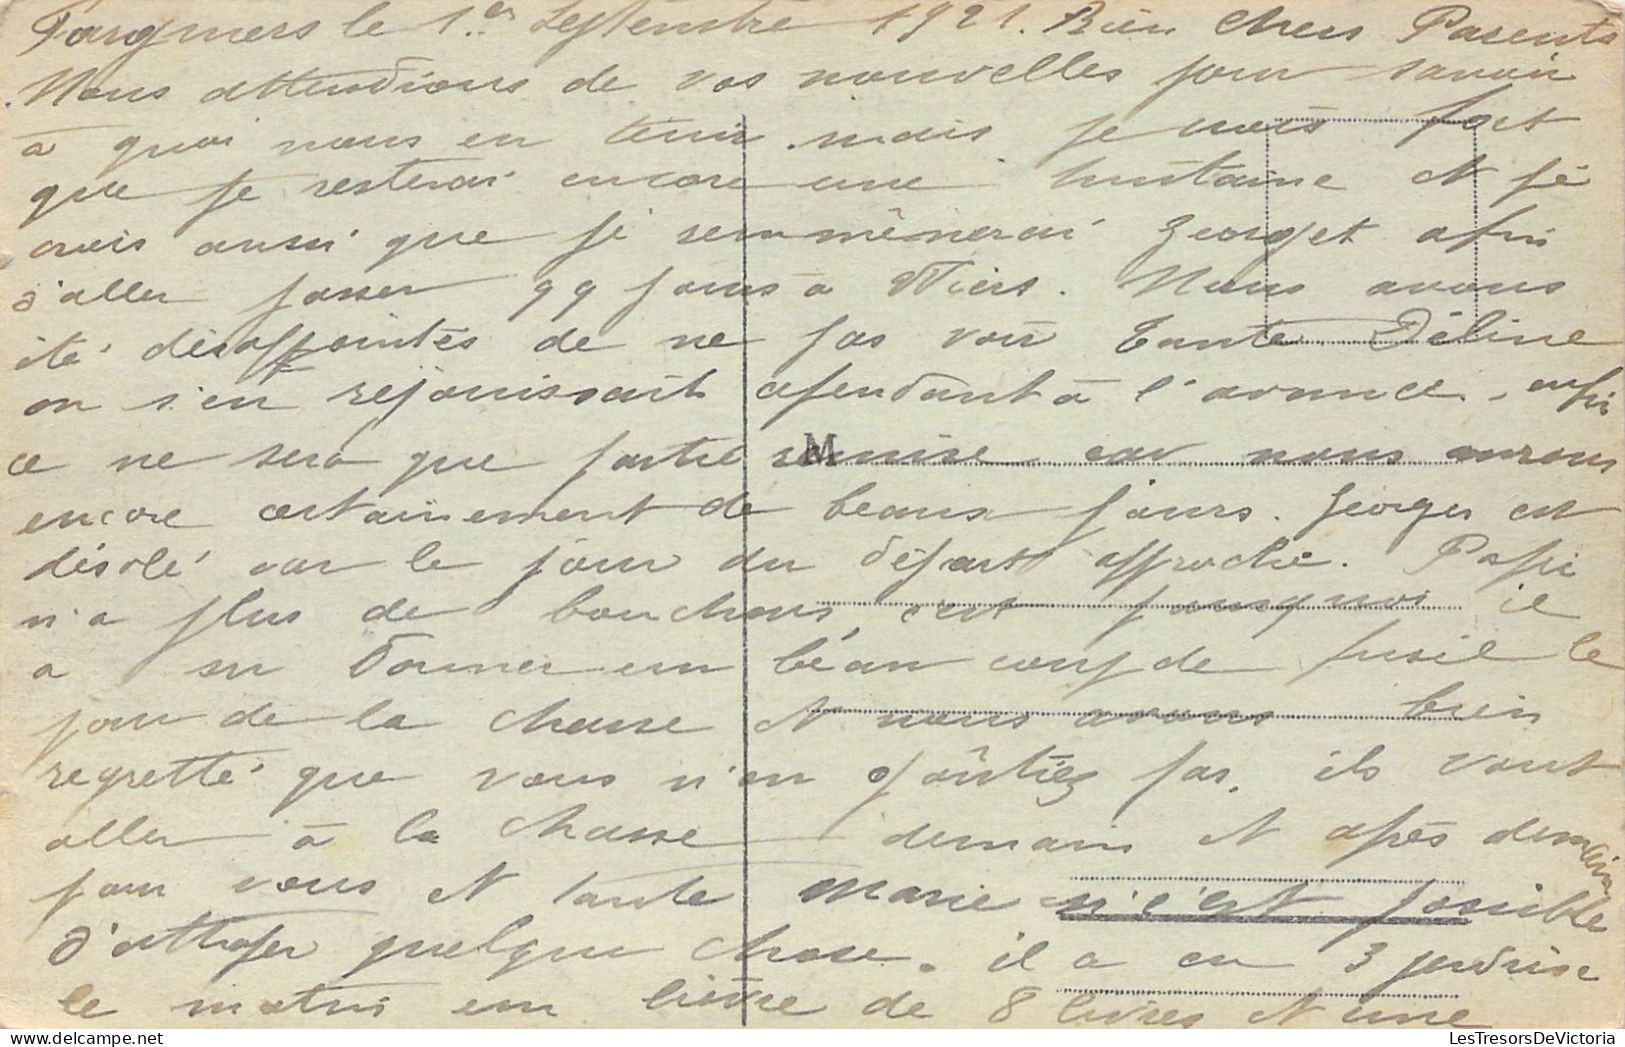 le 1er Septembre 1921. Bien Chers Parents
Nous attendions de vos nouvelles pour savoir
à quoi nous en tenir. mais je crois fort
que je resterai encore une huitaine et je
crois aussi que je remmènerai Georget afin
d'aller passer qq jours à Wiers. Nous avons
été désappointés de ne pas voir Tante Céline
on s'en réjouissait cependant à l'avance. enfin
ce ne sera que partie remise car nous aurons
encore certainement de beaux jours. Georges est
désolé car le jour du départ approche. Papi
n'a plus de bouchons, c'est pourquoi il
a su donner un beau coup de fusil le
jour de la chasse et nous avons bien
regretté que vous n'en goûtiez pas. ils vont
aller à la chasse demain et après demain
pour vous et tante Marie si c'est possible
d'attraper quelque chose. il a eu 3 perdrix
le matin un lièvre de 8 livres et une
M
LesTresorsDeVictoria